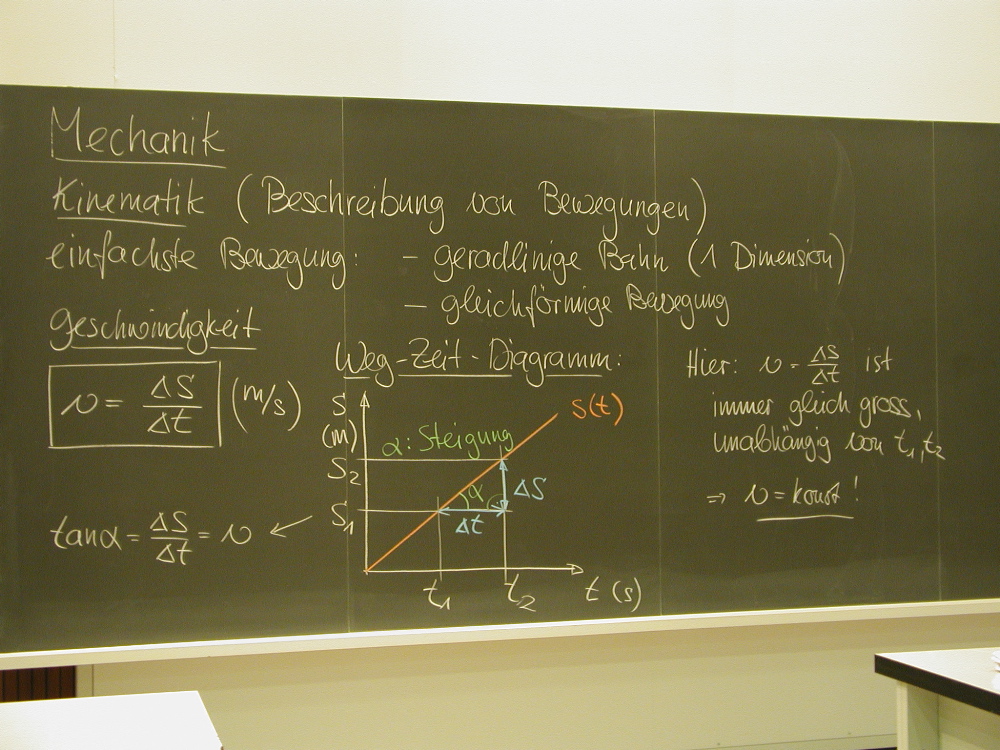 Mechanik
Kinematik (Beschreibung von Bewegungen)
einfachste Bewegung: – geradlinige Bahn (1 Dimension)
– gleichförmige Bewegung
Geschwindigkeit
v = ΔS/Δt (m/s)
tanα = ΔS/Δt = v
Weg-Zeit-Diagramm:
S
(m)
S(t)
α: Steigung
S₂
α
ΔS
S₁
Δt
t₁
t₂
t (s)
Hier: v = ΔS/Δt ist
immer gleich gross,
unabhängig von t₁, t₂
⇒ v = konst!